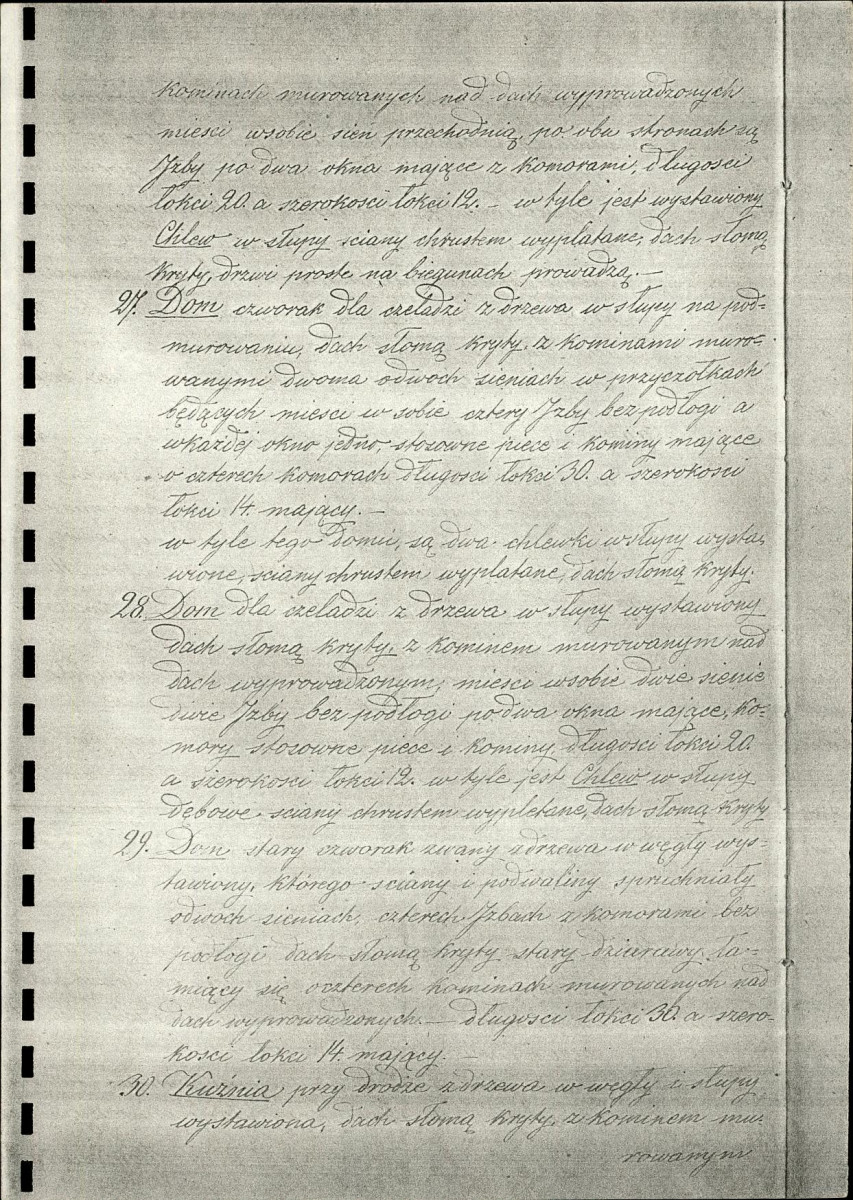 kominach murowanych nad dach wyprowadzonych
mieści wsobie sień przechodnią, po obu stronach są
Jzby po dwa okna mające z komorami, długości
łokci 20. a szerokości łokci 12. – w tyle jest wystawiony
Chlew w słupy sciany chrustem wyplatane, dach słomą
kryty, drzwi proste na biegunach prowadzą. –
27. Dom czworak dla czeladzi z drzewa w słupy na pod=
murowaniu, dach słomą kryty, z kominami muro=
wanymi dwoma odwóch sieniach w przyczołkach
będących mieści w sobie cztery Jzby bez podłogi a
wkażdej okno jedno, stosowne piece i kominy mające
o czterech komorach długości łokci 30. a szerokości
łokci 14. mający. –
w tyle tego Domu, są dwa chlewki wsłupy wysta,
wione, sciany chrustem wyplatane, dach słomą kryty.
28. Dom dla czeladzi z drzewa w słupy wystawiony
dach słomą kryty, z kominem murowanym nad
dach wyprowadzonym, mieści wsobie dwie sienie
dwie Jzby bez podłogi po dwa okna mające, ko=
mory stosowne piece i kominy, długości łokci 20.
a szerokości łokci 12. w tyle jest Chlew w słupy
dębowe sciany chrustem wypletane, dach słomą kryty
29. Dom stary czworak zwany zdrzewa w węgły wys=
tawiony, którego sciany i podwaliny spruchniały
odwóch sieniach, czterech Jzbach z komorami bez
podłogi dach słomą kryty stary dziurawy, ła=
miący się oczterech kominach murowanych nad
dach wyprowadzonych. – długości łokci 30. a szero=
kości łokci 14. mający. –
30. Kuźnia przy drodze zdrzewa w węgły i słupy
wystawiona, dach słomą kryty, z kominem mu=
rowanym